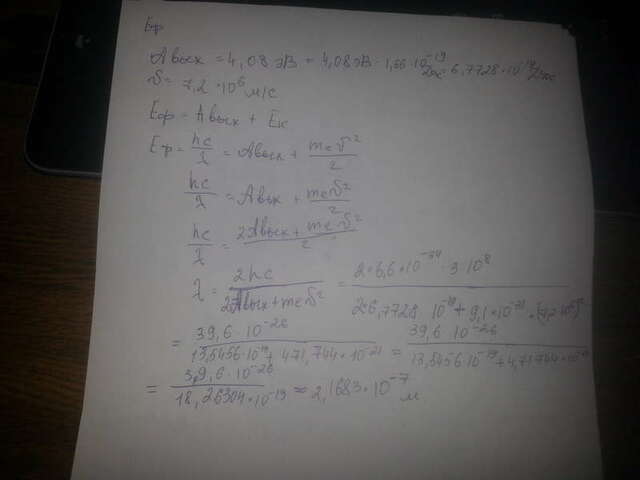 Eф
Aвых = 4,08 эВ = 4,08 эВ · 1,66 · 10⁻¹⁹ Дж = 6,7728 · 10⁻¹⁹ Дж
v = 7,2 · 10⁶ м/с
Eф = Aвых + Eк
Eф = hc/λ = Aвых + mev²/2
hc/λ = Aвых + mev²/2
hc/λ = 2Aвых + mev²/2
λ = 2hc/2Aвых + mev² = 2 · 6,6 · 10⁻³⁴ · 3 · 10⁸/2 · 6,7728 · 10⁻¹⁹ + 9,1 · 10⁻³¹ ·
= 39,6 · 10⁻²⁶/13,5456 · 10⁻¹⁹ + 471,744 · 10⁻²¹ = 39,6 · 10⁻²⁶/13,5456 · 10⁻¹⁹ + 4,71744 · 10
= 39,6 · 10⁻²⁶/18,26304 · 10⁻¹⁹ ≈ 2,1683 · 10⁻⁷ м